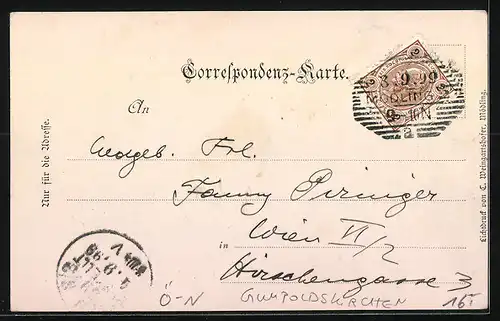 Correspondenz-Karte.
3.9.99
MÖDLING
9-10N
An
Wolgeb. Frl.
Fanny Piringer
in Wien VI/2
Hirschengasse 3
Nur für die Adresse.
Lichtdruck von C. Weingartshofer, Mödling.
4.9.99
Ö-N
GUMPOLDSKIRCHEN
16T